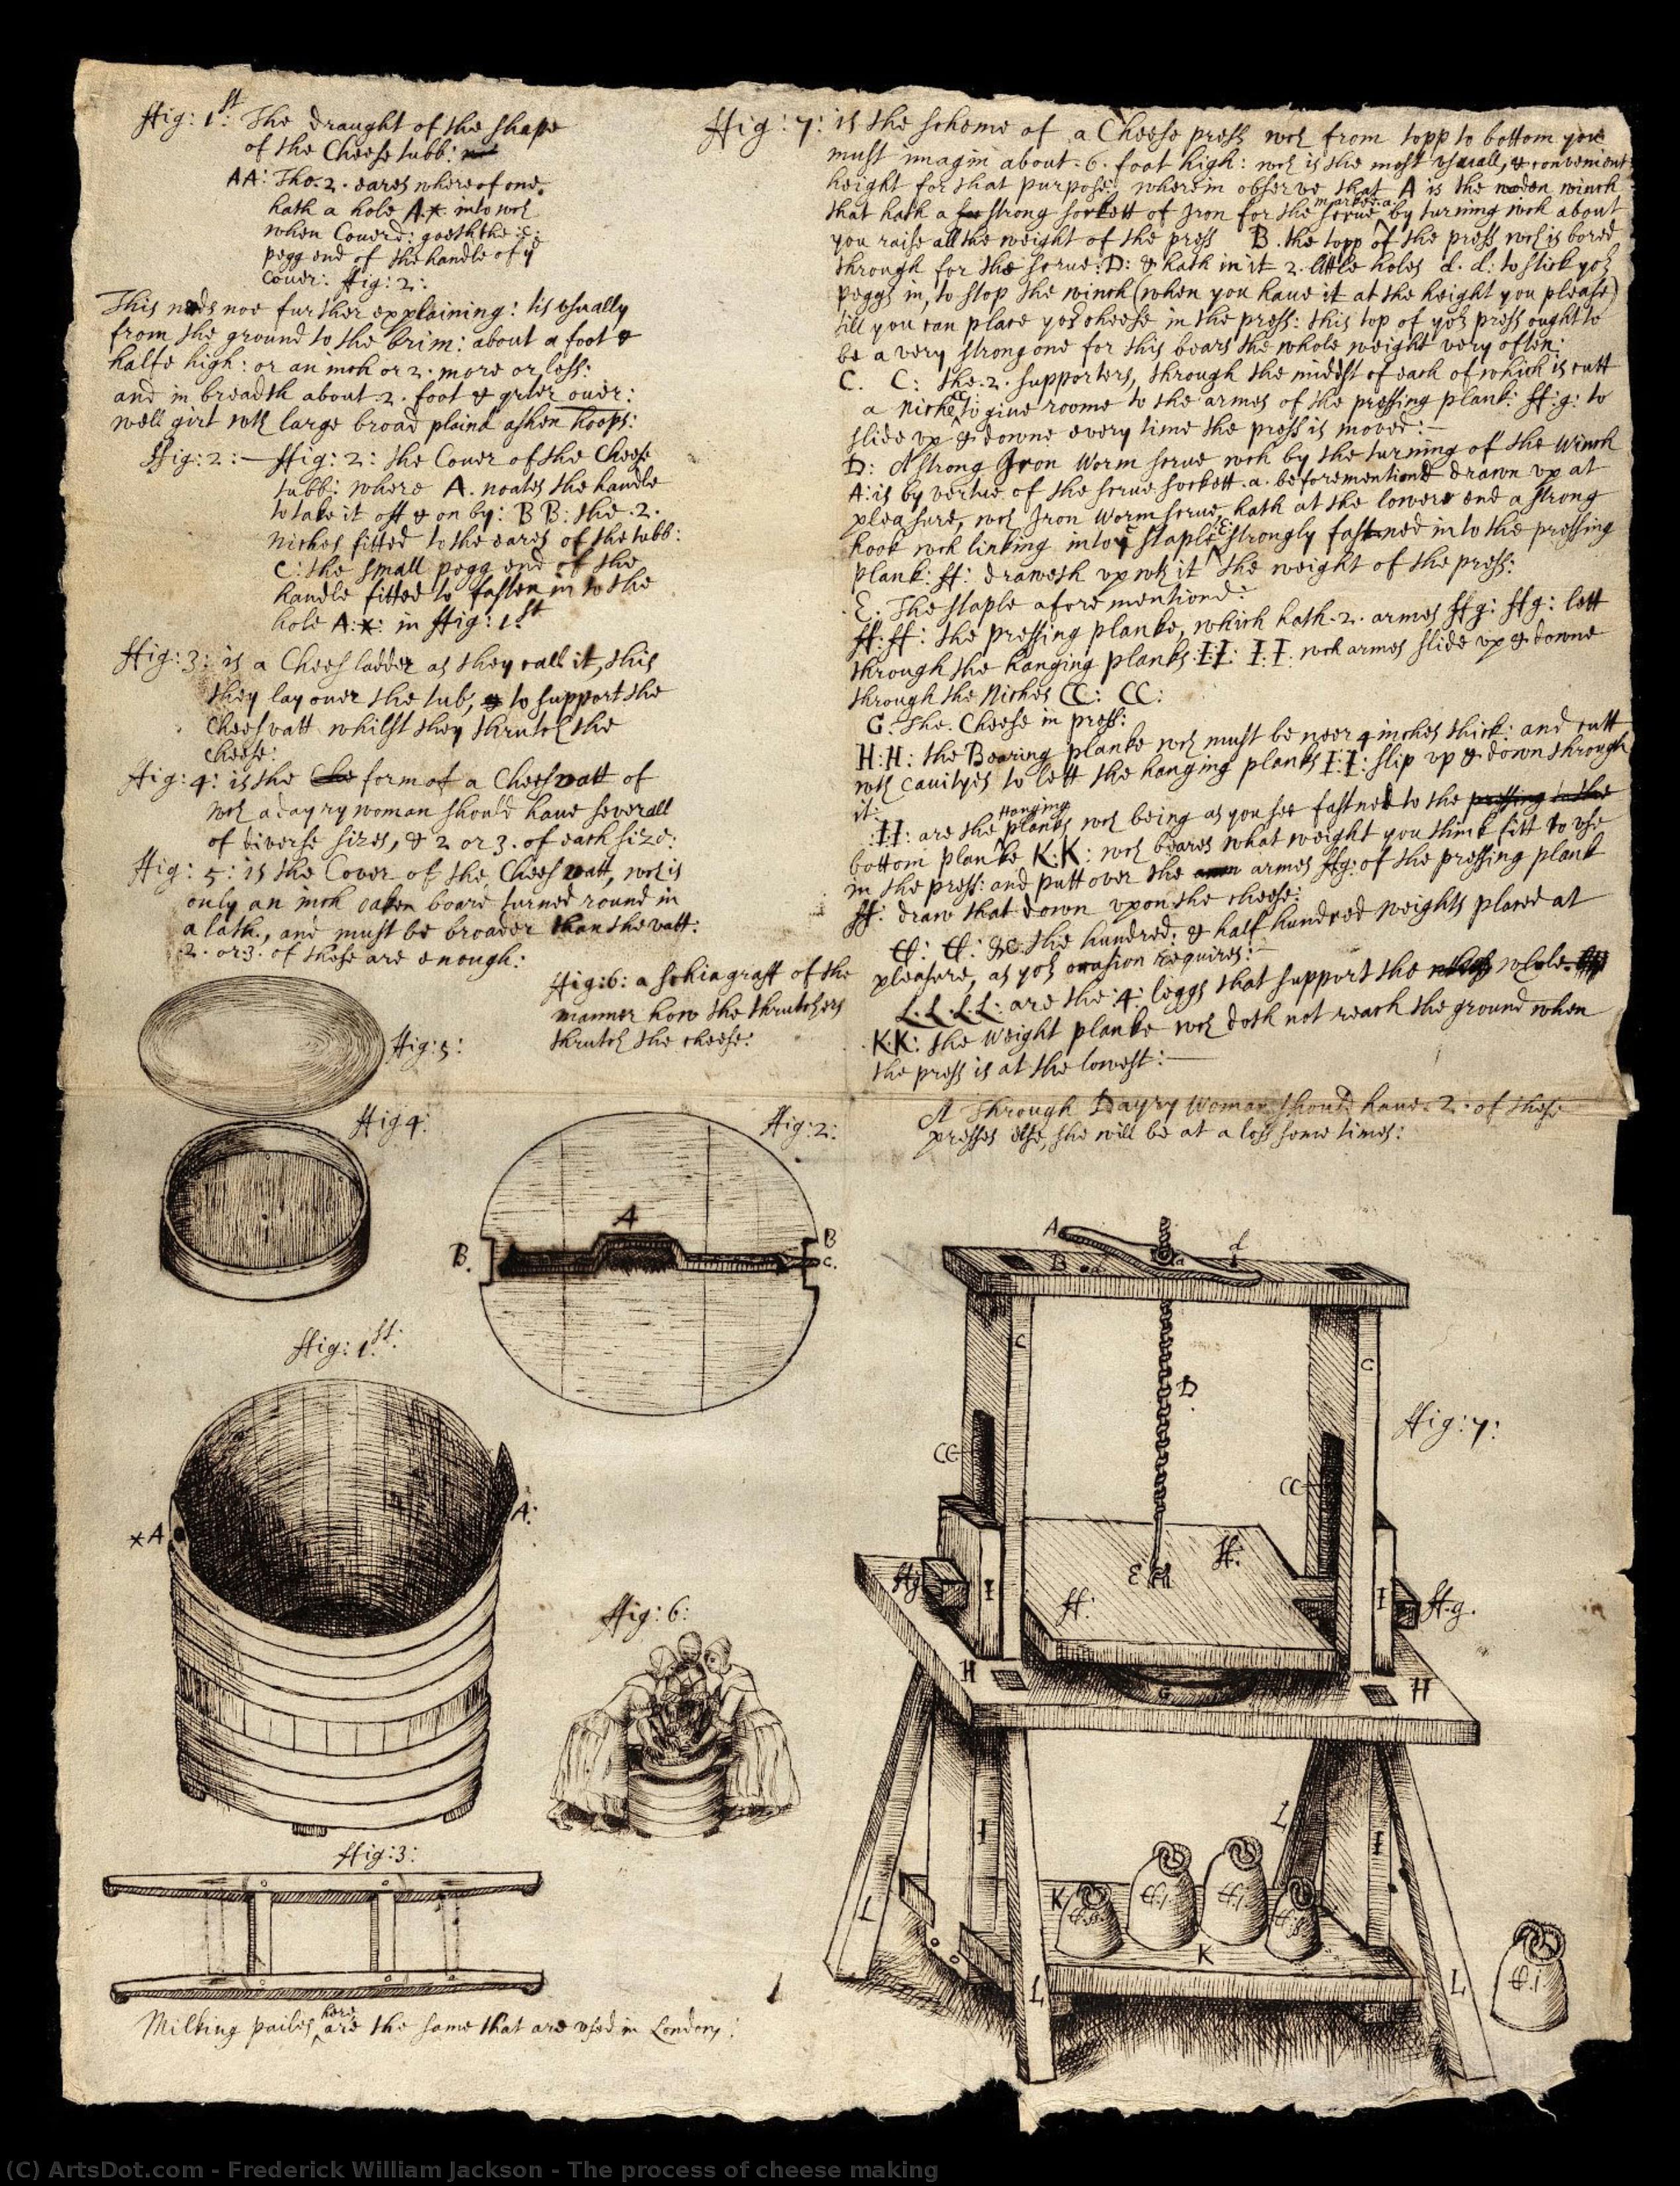 ffig: 1st: The draught of the shape
of the Cheese tubb:
AA: The .2. eares whereof one
hath a hole A.*. into wch
when Couerd: goeth the :C:
pegg end of the handle of ye
Couer: ffig: 2:
This needs noe further explaining: tis usually
from the ground to the brim: about a foot &
halfe high: or an inch or 2. more or less:
and in breadth about .2. foot & over:
well girt wth large broad plaind ashen hoops:
ffig: 2: — ffig: 2: the Couer of the Cheese
tubb: where A. noates the handle
to take it off & on by: BB: the .2.
Niches fitted to the eares of the tubb:
C: the small pegg end of the
handle fitted to fasten in to the
hole A:*: in ffig: 1.st
ffig: 3: is a Chees ladder as they call it, this
they lay over the tub, to support the
Cheesvatt whilst they thrutch the
Cheese:
ffig: 4: is the form of a Cheesvatt of
wch a dayry woman should have severall
of diverse sizes, & 2 or 3. of each size:
ffig: 5: is the Cover of the Chees vatt, wch is
only an inch oaken board turned round in
a lath, and must be broader than the vatt:
2. or 3. of these are enough:
ffig:6: a schiagraff of the
manner how the thrutchers
thrutch the cheese:
ffig: 7: is the scheme of a Cheese press wch from topp to bottom you
must imagin about .6. foot high: wch is the most usuall, & convenient
height for that purpose: wherein observe that A is the woden winch
marked .a.
that hath a strong sockett of Iron for the scrue, by turning wch about
you raise all the weight of the press B. the topp of the press wch is bored
through for the scrue: D: & hath in it 2. little holes d. d: to stick yor
peggs in, to stop the winch (when you have it at the height you please)
till you can place yor cheese in the press: this top of yor press ought to
be a very strong one for this bears the whole weight very often:
C. C: the .2. supporters, through the middst of each of which is cutt
CC
a niche to give roome to the armes of the pressing plank: ff:g: to
slide up & downe every time the press is moved: —
D: A strong Iron Worm scrue wch by the turning of the Winch
A: is by vertue of the scrue sockett .a. beforementiond drawn up at
pleasure, wch Iron Worm scrue, hath at the lower end a strong
hook wch linking into ye staple :E: strongly fastned into the pressing
plank: ff: draweth up wth it the weight of the press:
E: The staple afore mentiond:
ff: ff: the pressing planke, which hath .2. armes ffg: ffg: lett
through the hanging planks :II: I.I. wch armes slide up & downe
through the Niches CC: CC:
G: The Cheese in press:
H:H: the Bearing planke wch must be neer 4 inches thick: and cutt
wth cavityes to lett the hanging planks I:I: slip up & down through
it:
Hanging
:I:I: are the planks wch being as you see fastned to the pressing
bottom planke K:K: wch beares what weight you think fitt to use
in the press: and putt over the armes ffg: of the pressing plank
ff: draw that down upon the cheese:
&c the hundred: & half hundred weights placed at
pleasure, as yor occasion requires:
L.L.L.L: are the :4: leggs that support the whole.
K:K: the Weight planke wch doth not reach the ground when
the press is at the lowest: —
A Through Dayry Woman should have .2. of these
presses else, she will be at a loss some times:
ffig: 5:
ffig 4:
ffig: 2:
A
B.
B
C.
ffig: 1.st:
*A
A:
ffig: 6:
ffig: 3:
here
Milking pailes are the same that are used in London:
ffig: 7:
A
B
a
d
C
C
D
CC
CC
E
ff:
ff:
ffg
ff.g.
I
I
H
H
G
I
I
L
L
L
L
K
K
(C) ArtsDot.com - Frederick William Jackson - The process of cheese making